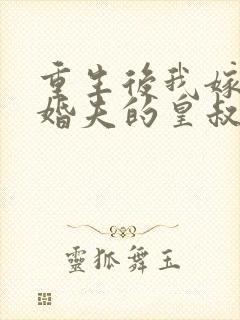 重生後我嫁
婚夫的皇叔
靈狐舞玉